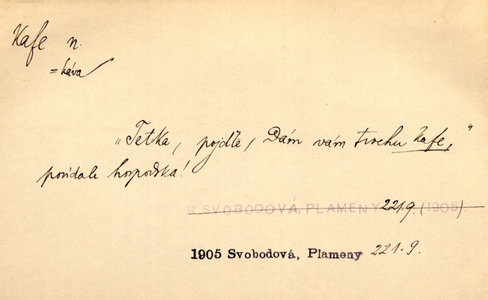 Kafe n.
= káva
„Tetka, pojďte, Dám vám trochu kafe,"
povídala hospodská!
R. SVOBODOVÁ, PLAMENY 221.9. (1905)
1905 Svobodová, Plameny 221.9.